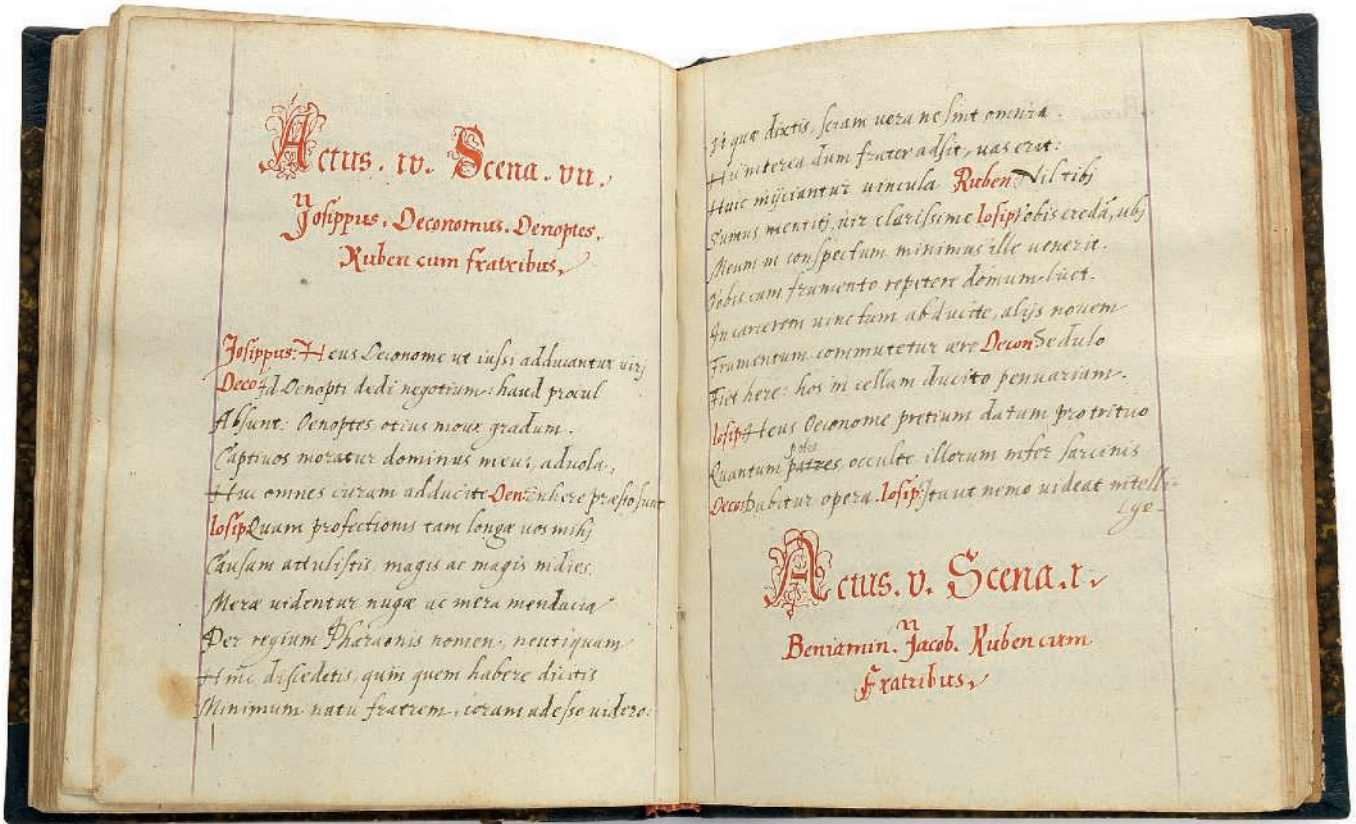 Actus. iv. Scena. vii.
Josippus. Oeconomus. Oenoptes.
Ruben cum fratribus,
Josippus: Heus Oeconome ut iussi adducantur virj
Deco: Id Oenopti dedi negotium: haud procul
Absunt: Oenoptes otius move gradum.
Captivos moratur dominus meus, advola,
Huc omnes curam adducite Oen: inhere præsto sunt
Iosip Quam profectionis tam longæ vos mihj
Causam attulistis, magis ac magis indies
Meræ videntur nugæ ac mera mendacia
Per regium Pharaonis nomen, neutiquam
Hinc discedetis, quin quem habere dicitis
Minimum natu fratrem, coram adesse videro:
Ut quæ dixtis, sciam vera ne sint omnia.
Huic iniiciantur vincula Ruben Nil tibj
Sumus mentitj, vir clarissime Iosip Vobis credā, ubj
Meum in conspectum minimus ille venerit.
Vobis cum frumento repetere domum licet.
In carcerem vinctum abducite, alijs novem
Frumentum commutetur ære Decon Sedulo
Fiet here: hos in cellam ducito penuariam.
Iosip Heus Oeconome pretium datum pro tritico
potes
Quantum patres, occulte illorum infer sarcinis
Decon Dabitur opera. Iosip: Ita ut nemo videat intelli-
Actus. v. Scena. i.
Beniamin. Jacob. Ruben cum
Fratribus,